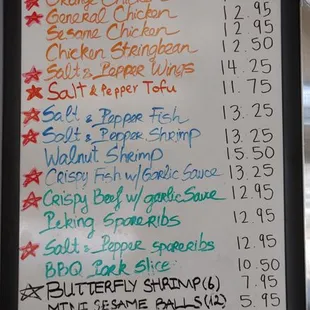 Orange Chicken
General Chicken 12.95
Sesame Chicken 12.95
Chicken Stringbean 12.50
Salt & Pepper Wings 14.25
Salt & Pepper Tofu 11.75
Salt & Pepper Fish 13.25
Salt & Pepper Shrimp 13.25
Walnut Shrimp 15.50
Crispy Fish w/ Garlic Sauce 13.25
Crispy Beef w/ garlic Sauce 12.95
Peking Spareribs 12.95
Salt & Pepper spareribs 12.95
BBQ Pork Slice 10.50
BUTTERFLY SHRIMP (6) 7.95
MINI SESAME BALLS (12) 5.95